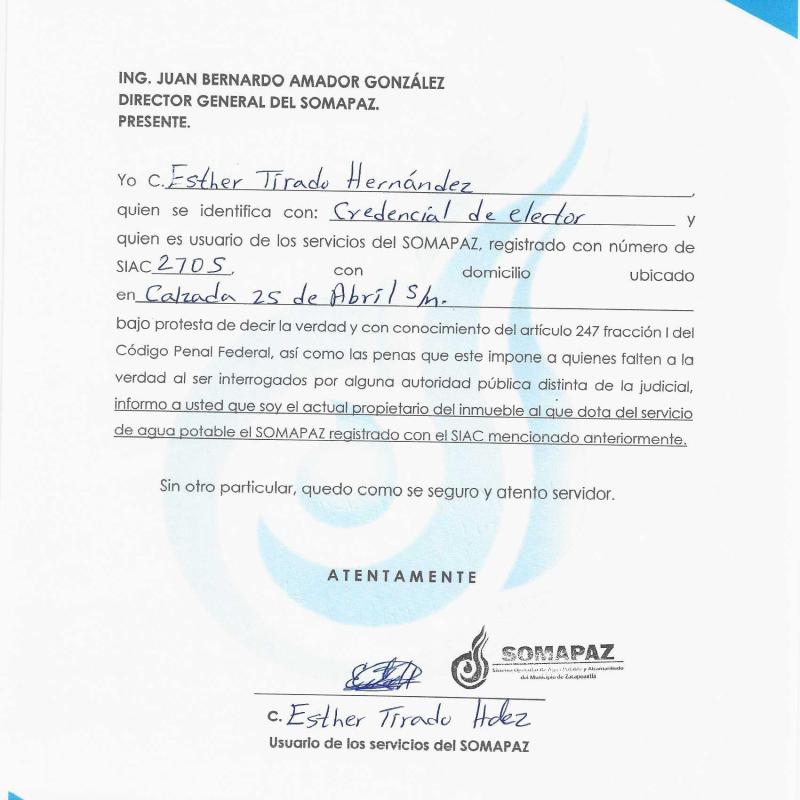 ING. JUAN BERNARDO AMADOR GONZÁLEZ
DIRECTOR GENERAL DEL SOMAPAZ.
PRESENTE.
Yo C. Esther Tirado Hernández,
quien se identifica con: Credencial de elector y
quien es usuario de los servicios del SOMAPAZ, registrado con número de
SIAC 2705, con domicilio ubicado
en Calzada 25 de Abril S/n.
bajo protesta de decir la verdad y con conocimiento del artículo 247 fracción I del
Código Penal Federal, así como las penas que este impone a quienes falten a la
verdad al ser interrogados por alguna autoridad pública distinta de la judicial,
informo a usted que soy el actual propietario del inmueble al que dota del servicio
de agua potable el SOMAPAZ registrado con el SIAC mencionado anteriormente.
Sin otro particular, quedo como se seguro y atento servidor.
ATENTAMENTE
SOMAPAZ
Sistema Operador de Agua Potable y Alcantarillado
del Municipio de Zacapoaxtla
C. Esther Tirado Hdez
Usuario de los servicios del SOMAPAZ